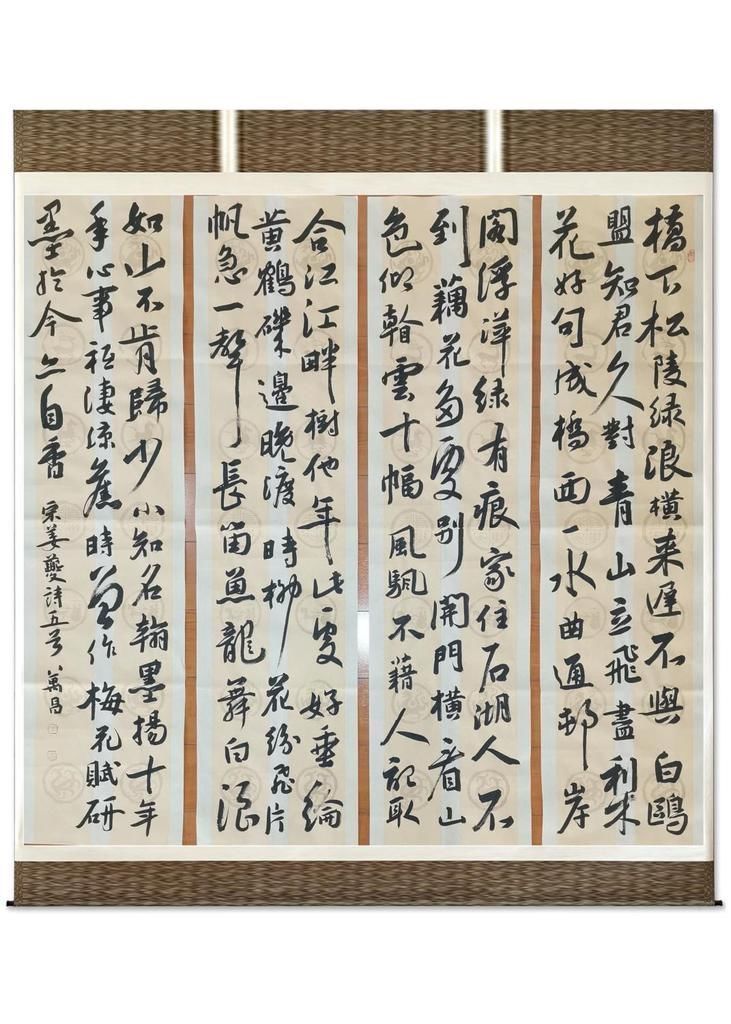 橋下松陵绿浪横来遲不與白鷗
盟知君久對青山立飛盡梨
花好句成橋西一水曲通邨岸
閣浮萍绿有痕家住石湖人不
到藕花多處别開門横看山
色仰看雲十幅風颿不藉人記取
合江江畔樹他年此處好垂綸
黄鶴磯邊晚渡時柳花紛飛片
帆急一聲長笛魚龍舞白浪
如山不肯歸少小知名翰墨場十年
年心事祗凄凉舊時曾作梅花賦研
墨於今亦自香
宋姜夔詩五首 萬昌